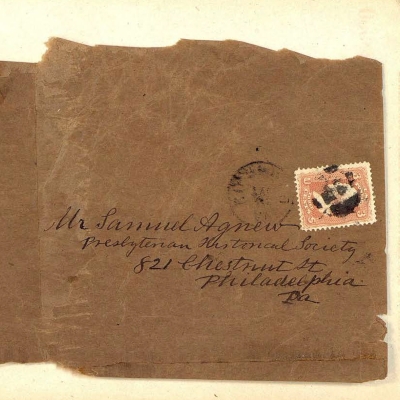 Mr Samuel Agnew
Presbyterian Historical Society
821 Chestnut St
Philadelphia
Pa